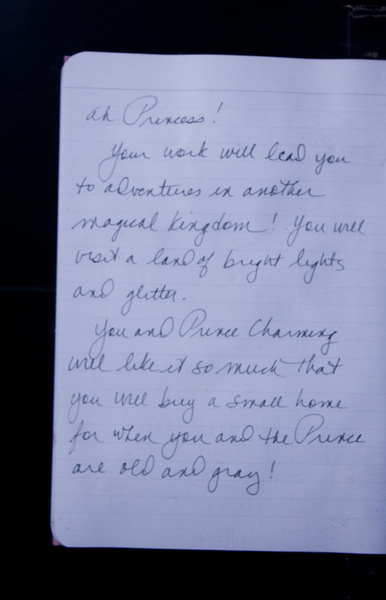 ah Princess!
Your work will lead you
to adventures in another
magical kingdom! You will
visit a land of bright lights
and glitter.
You and Prince Charming
will like it so much that
you will buy a small home
for when you and the Prince
are old and gray!